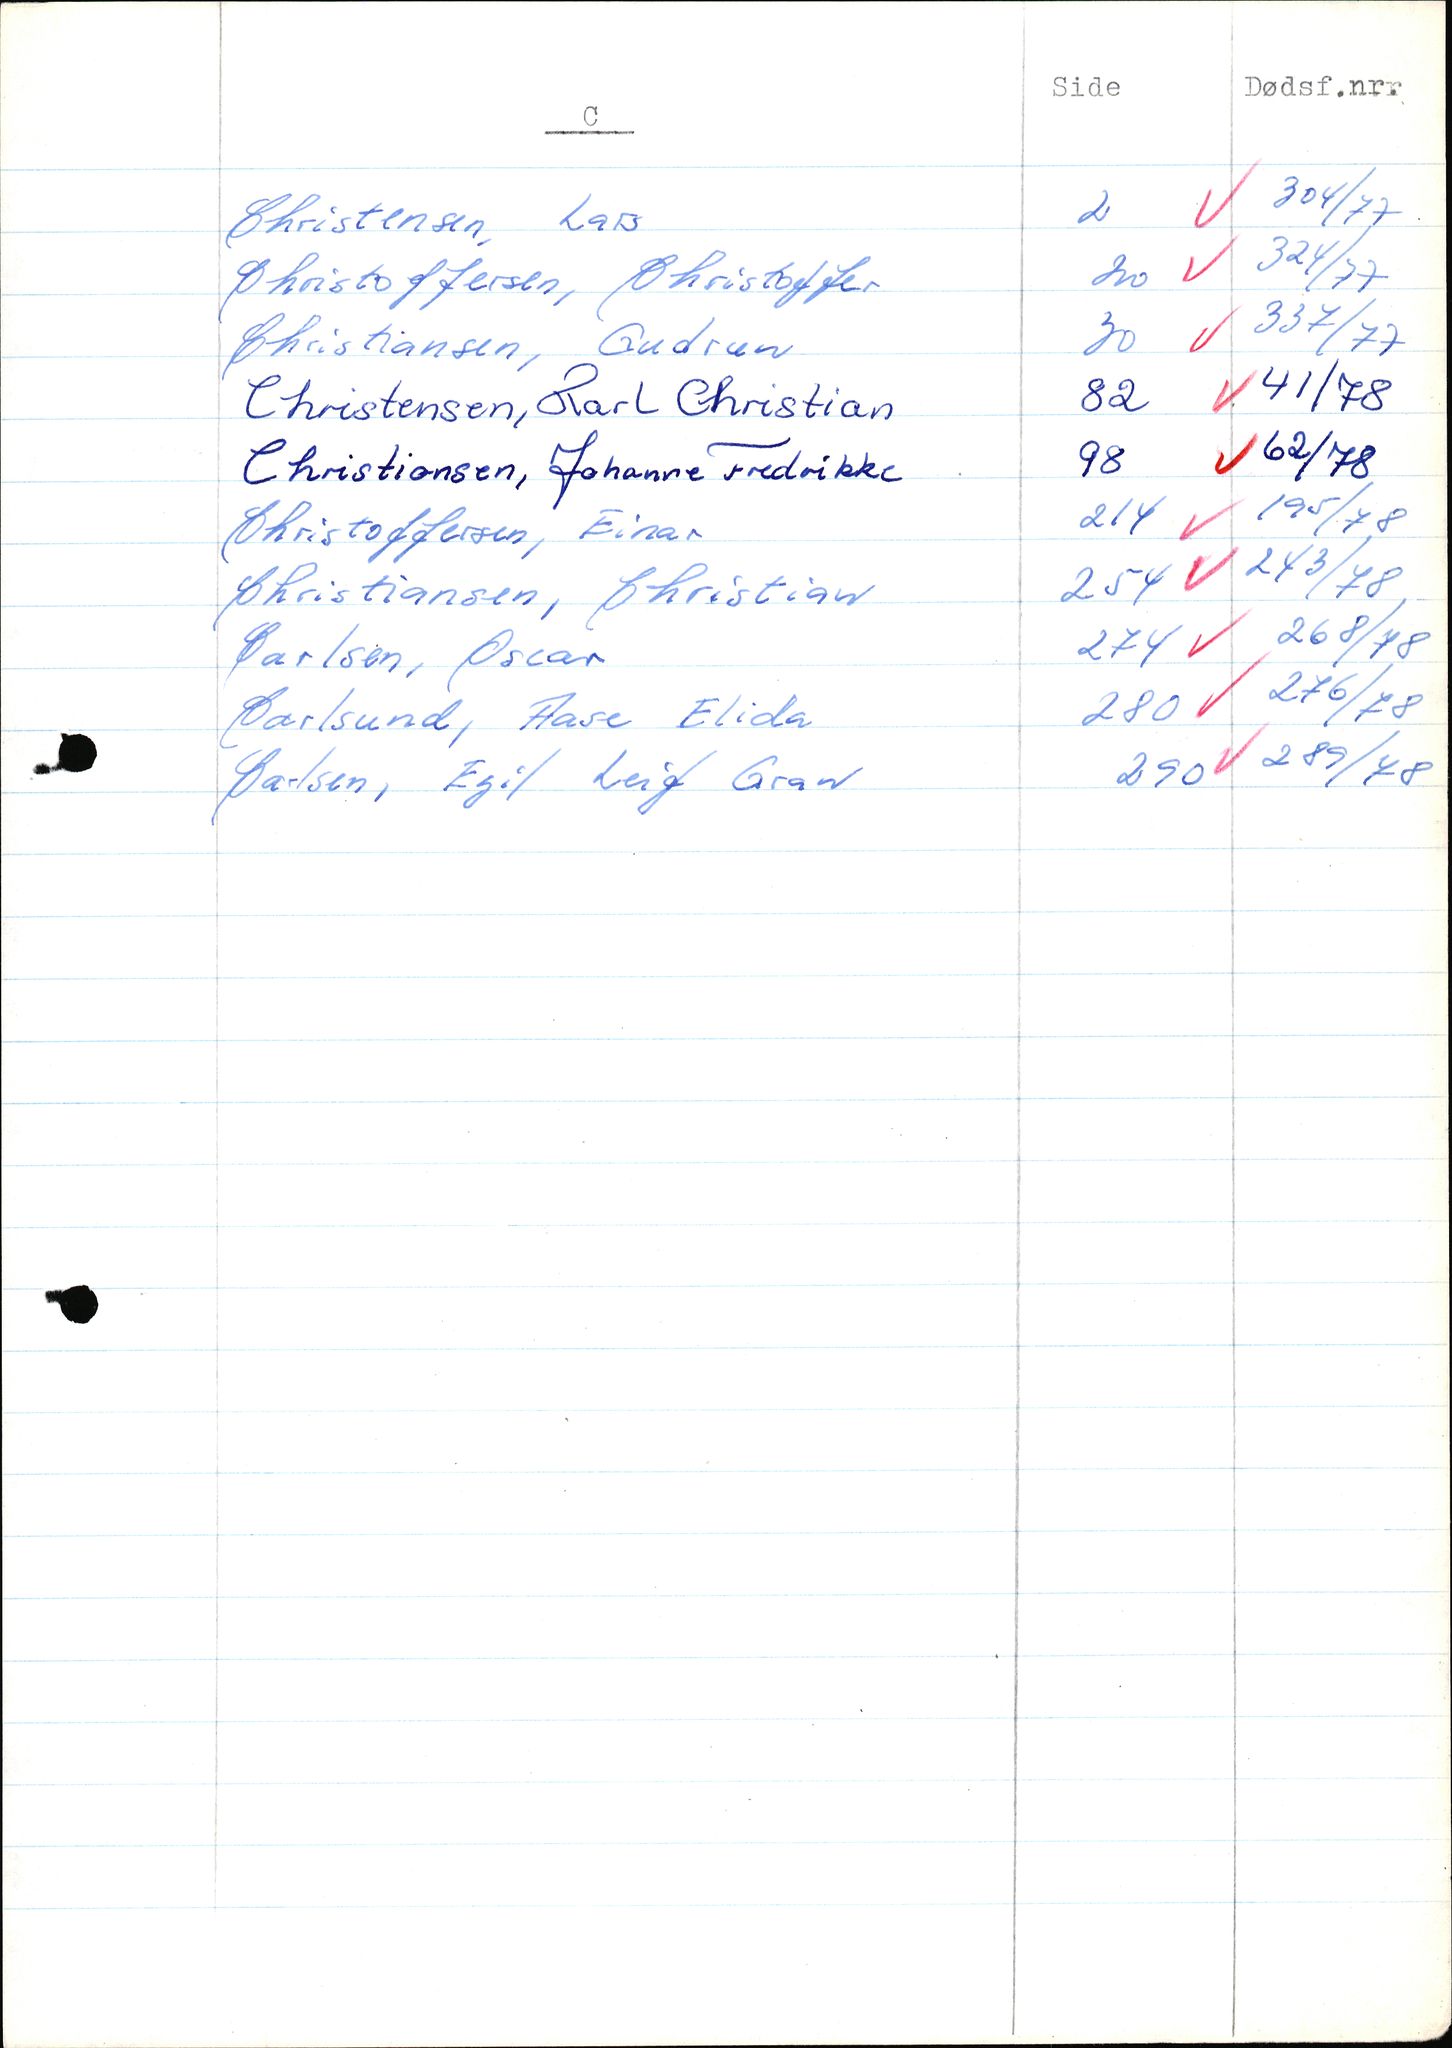 Side Dødsf.nrr
C
Christensen, Lars 2 ✓ 304/77
Christoffersen, Christoffer 20 ✓ 324/77
Christiansen, Gudrun 30 ✓ 337/77
Christensen, Karl Christian 82 ✓ 41/78
Christiansen, Johanne Fredrikke 98 ✓ 62/78
Christoffersen, Einar 214 ✓ 195/78
Christiansen, Christian 254 ✓ 243/78
Carlsen, Oscar 274 ✓ 268/78
Carlsund, Aase Elida 280 ✓ 276/78
Carlsen, Egil Leif Gran 290 ✓ 289/78